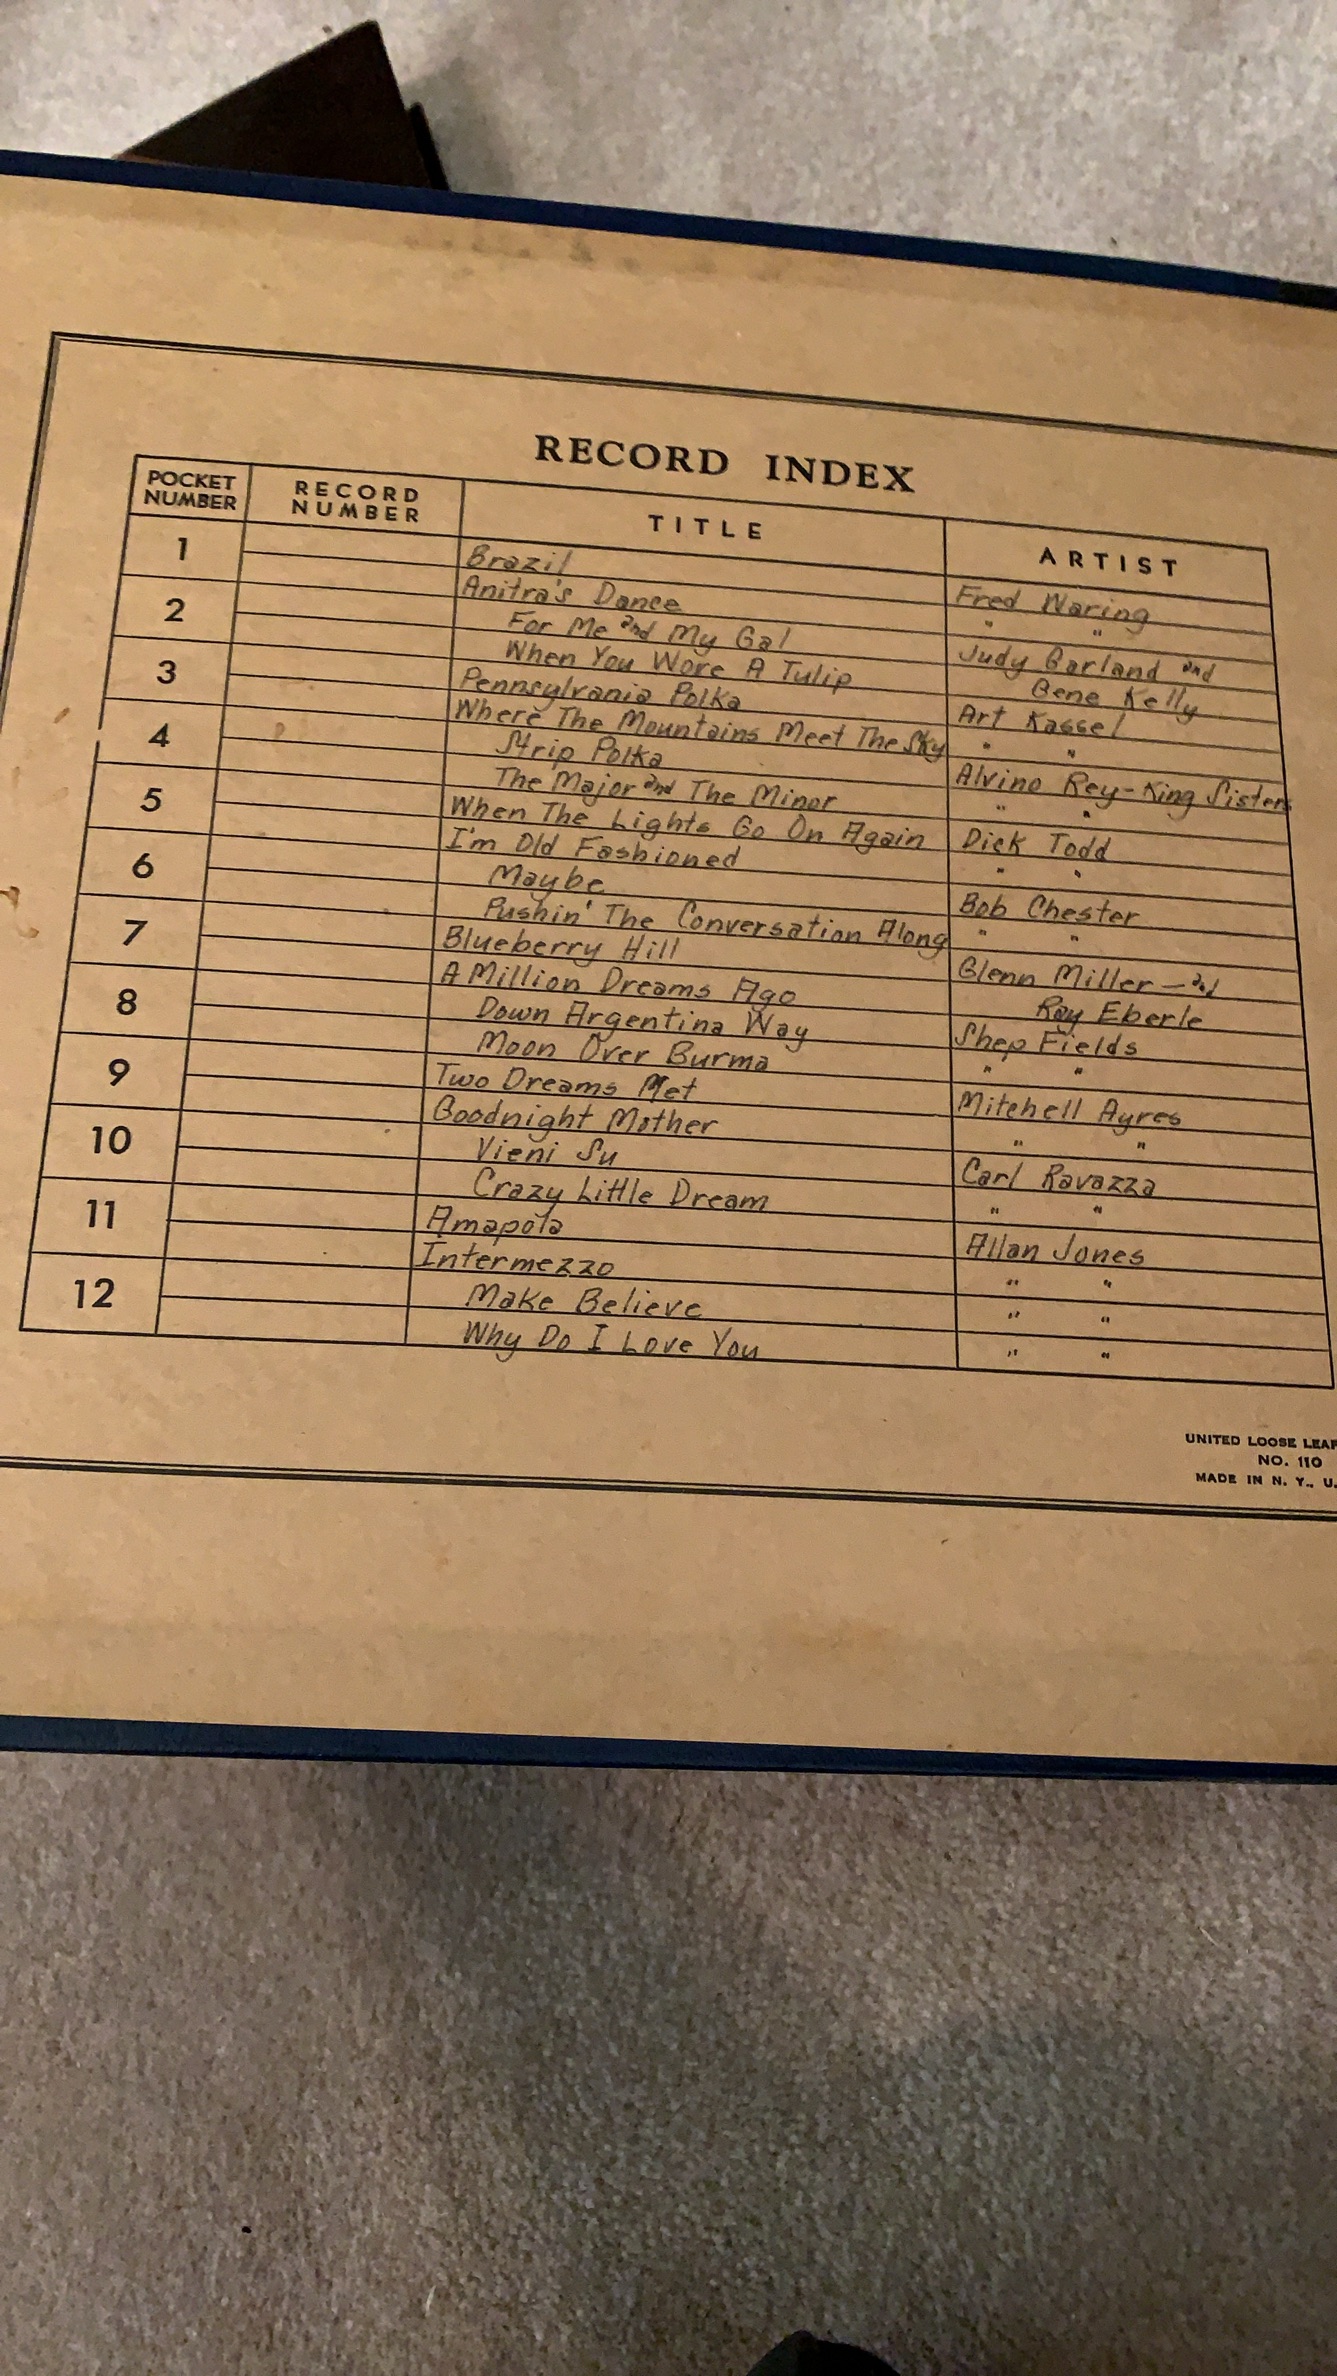 RECORD INDEX
POCKET NUMBER RECORD NUMBER TITLE ARTIST
1 Brazil Fred Waring
Anitra's Dance " "
2 For Me and My Gal Judy Garland and
When You Wore A Tulip Gene Kelly
3 Pennsylvania Polka Art Kassel
Where The Mountains Meet The Sky " "
4 Strip Polka Alvino Rey-King Sisters
The Major and The Minor " "
5 When The Lights Go On Again Dick Todd
I'm Old Fashioned " "
6 Maybe Bob Chester
Pushin' The Conversation Along " "
7 Blueberry Hill Glenn Miller - and
A Million Dreams Ago Ray Eberle
8 Down Argentina Way Shep Fields
Moon Over Burma " "
9 Two Dreams Met Mitchell Ayres
Goodnight Mother " "
10 Vieni Su Carl Ravazza
Crazy Little Dream " "
11 Amapola Allan Jones
Intermezzo " "
12 Make Believe " "
Why Do I Love You " "
UNITED LOOSE LEAF
NO. 110
MADE IN N. Y., U.